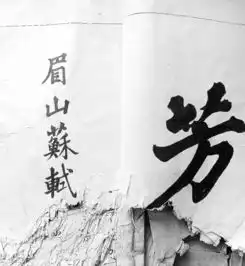 芳
眉山蘇軾